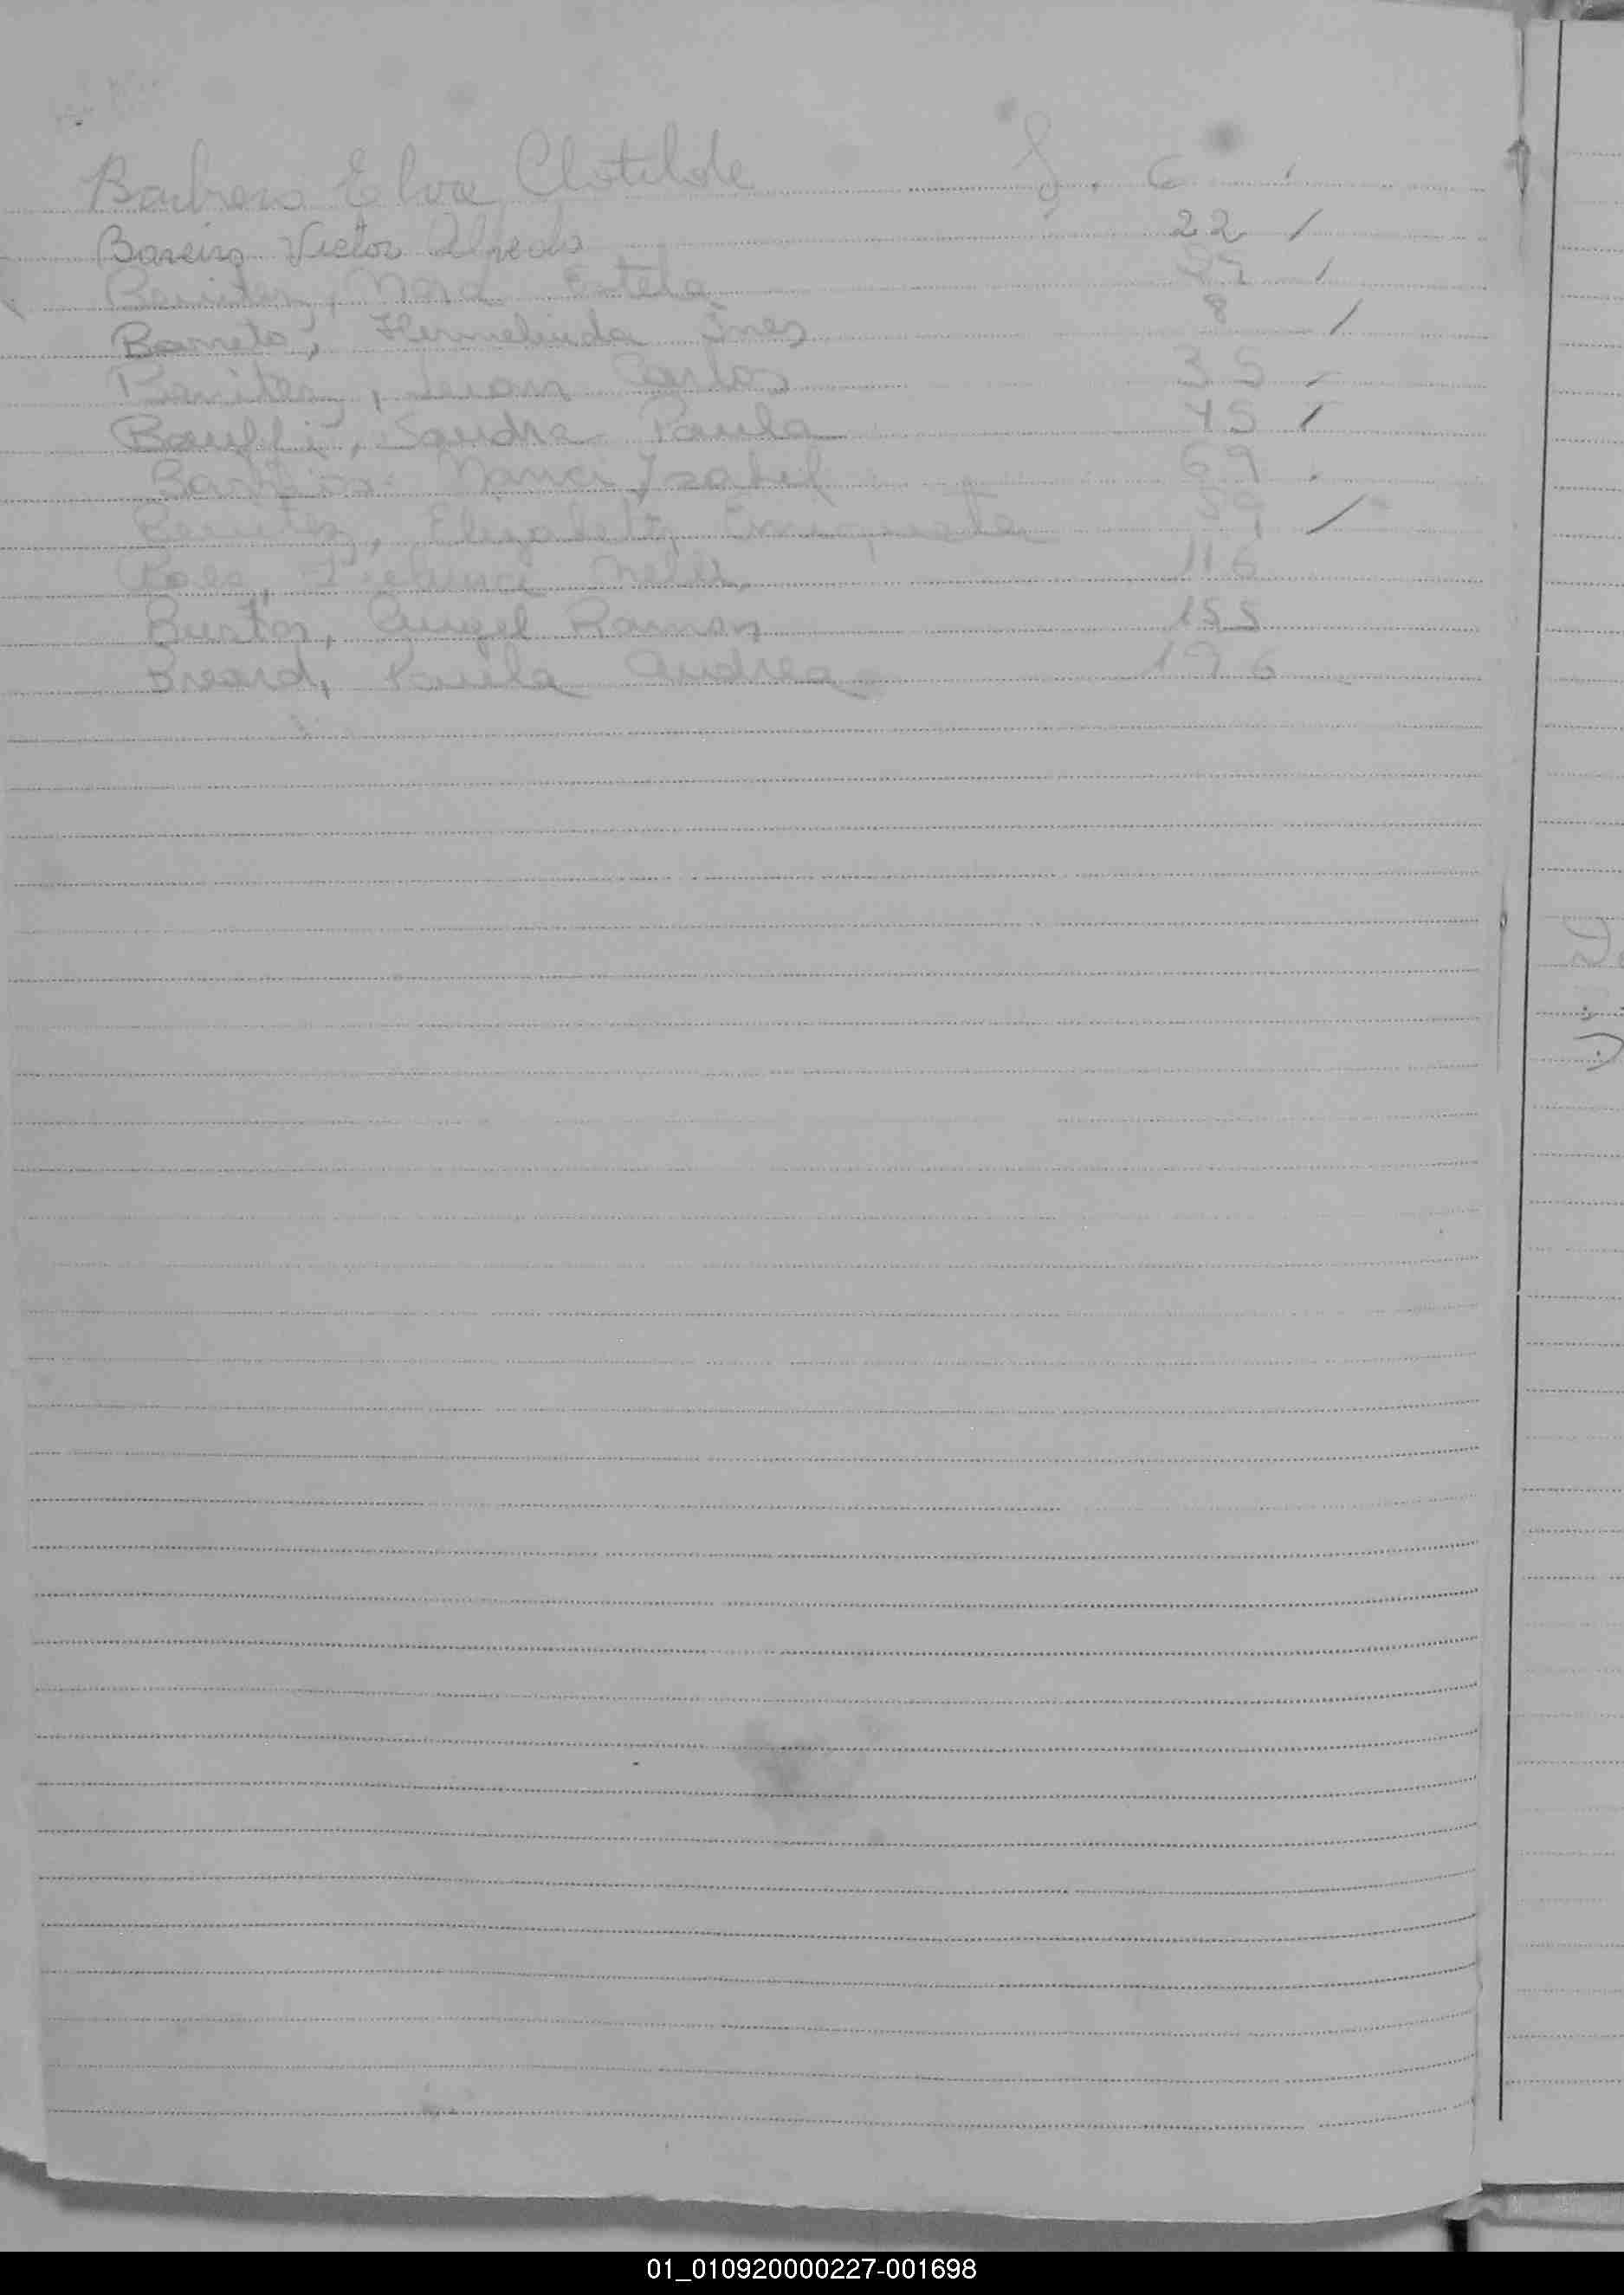 Barbero Elva Clotilde f. 6
Bareiro Victor Alfredo 22 /
Benitez, Nora Estela /
Barreto, Hermelinda Ines 8 /
Benitez, Juan Carlos 35
Sandra Paula 45 /
Isabel 69
Benitez, Elizabeth Enriqueta 59 /
116
Bustos, Angel Ramon 155
Breard, Paula Andrea 196
01_010920000227-001698